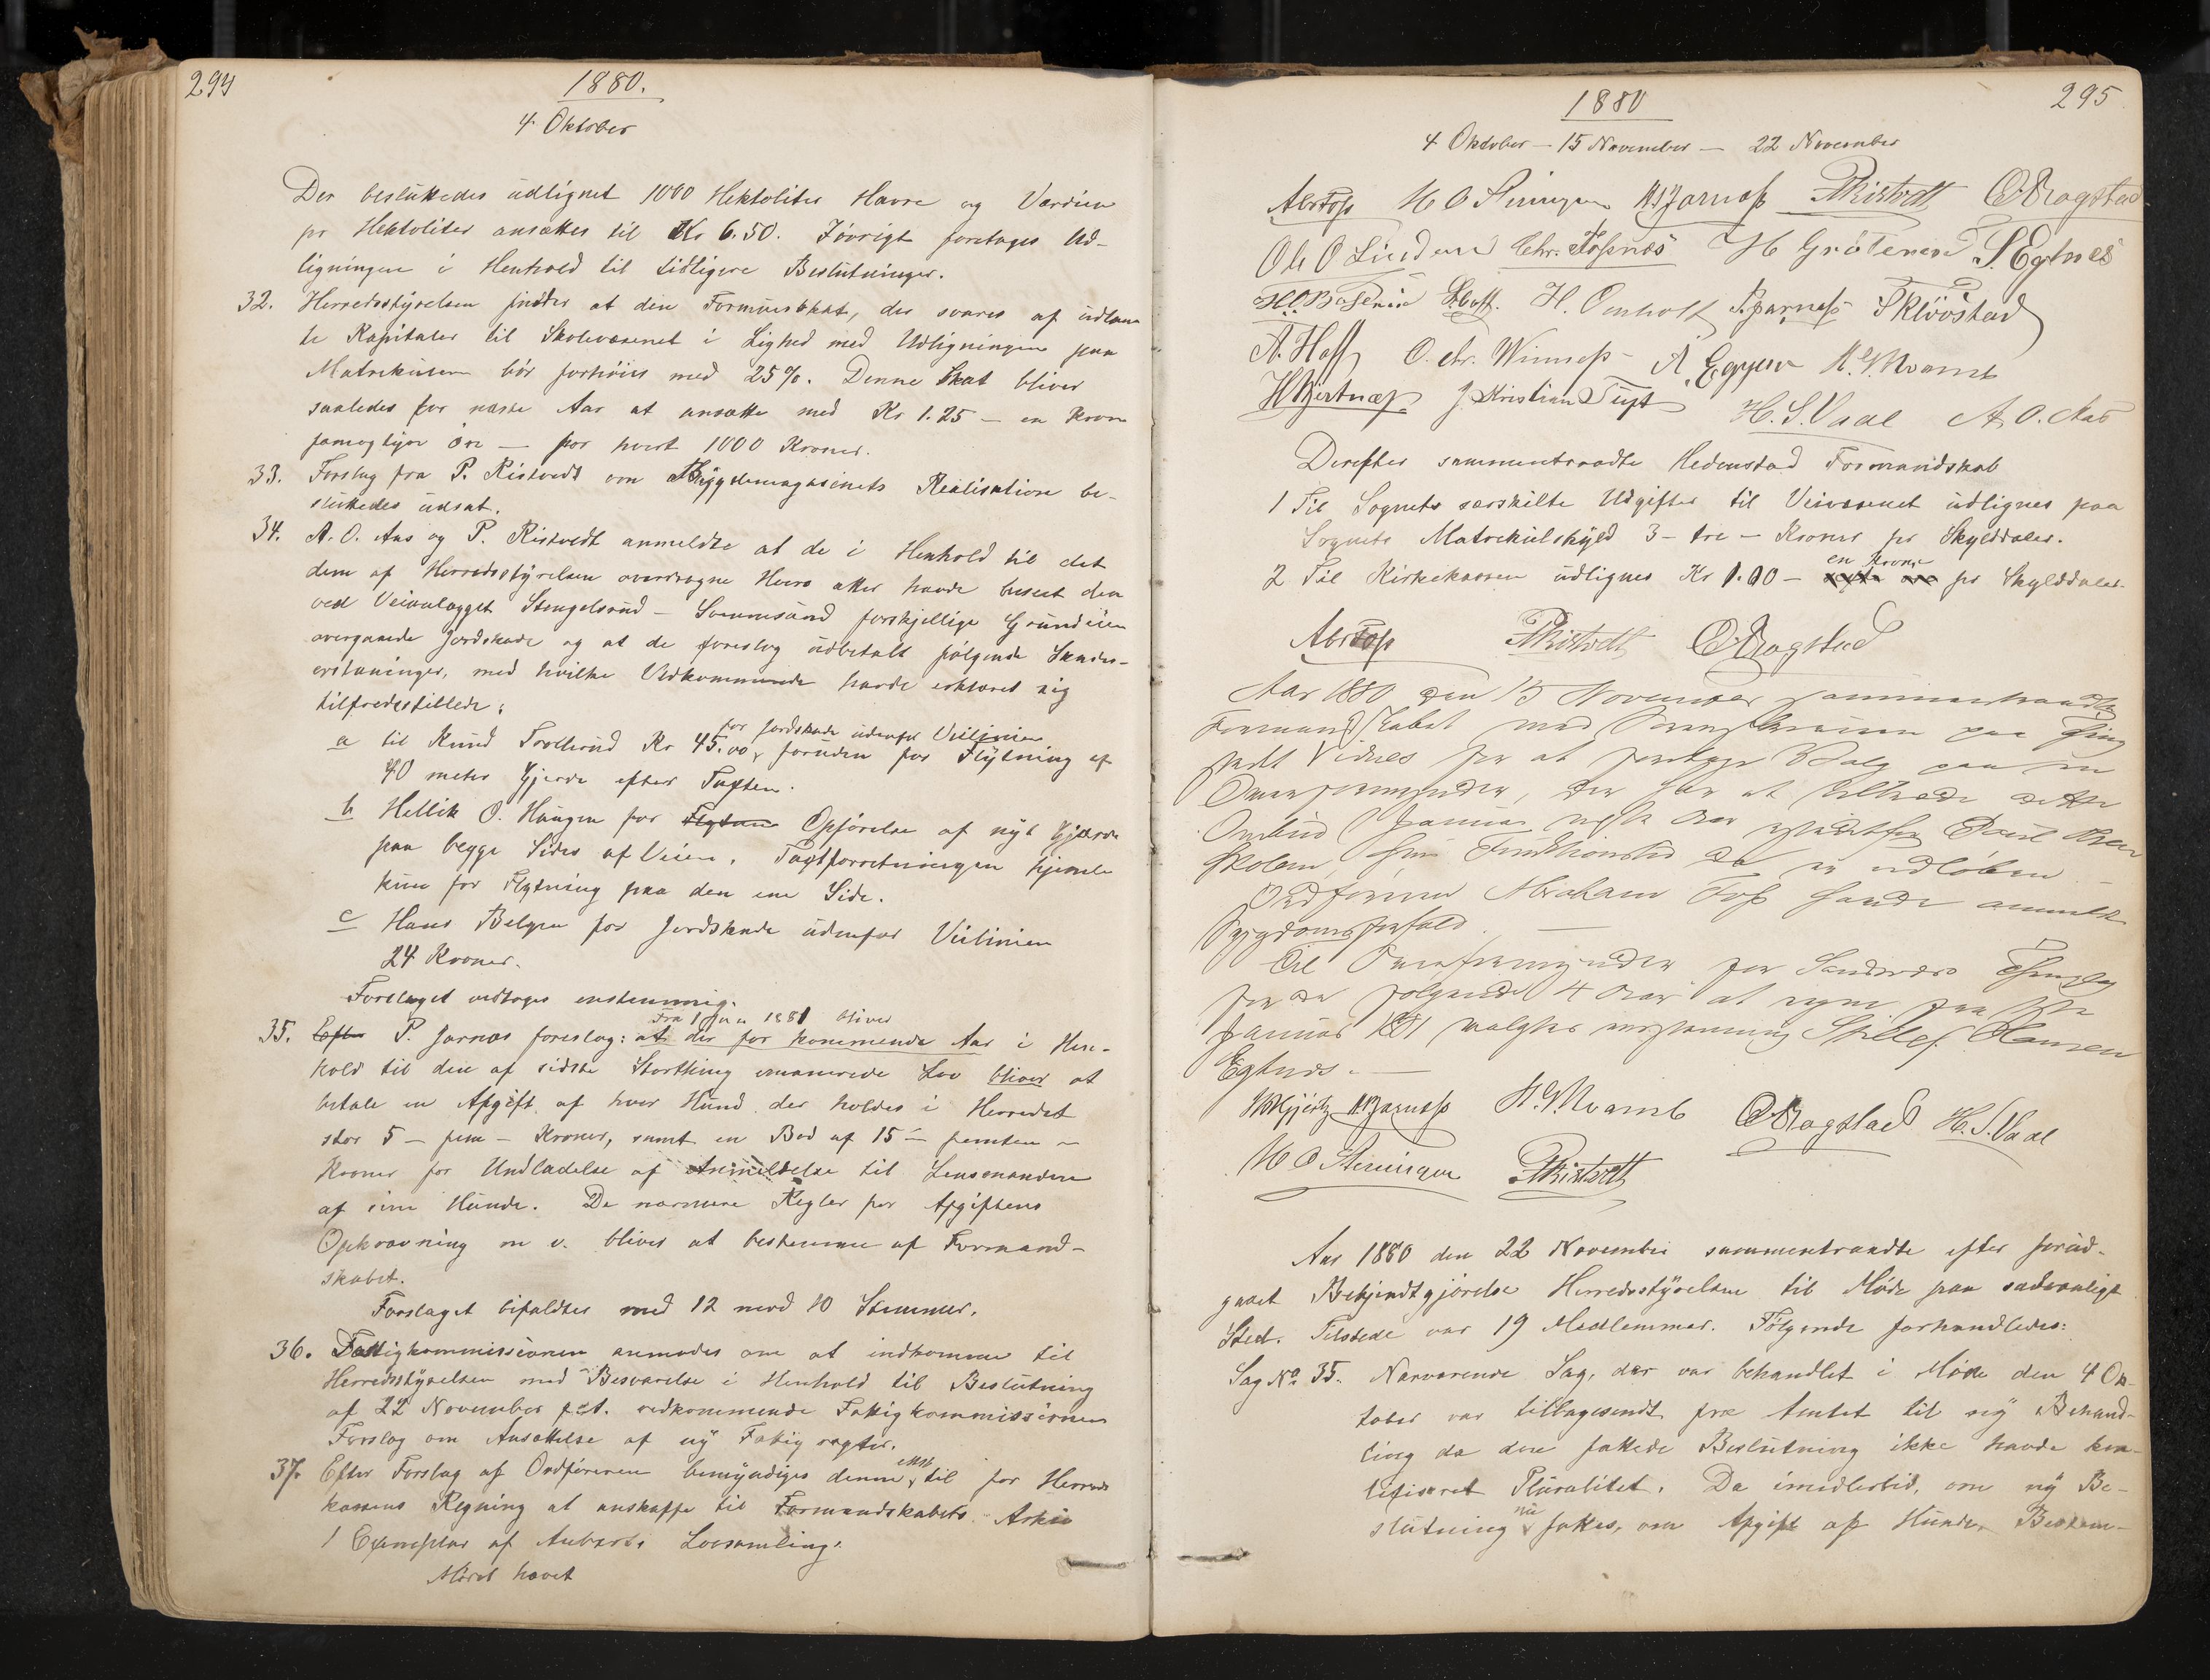 294
1880.
4 Oktober
Der besluttedes udlignet 1000 Hektoliter Havre og Værdien
pr Hektoliter ansættes til Kr 6.50. Iövrigt foretages Ud-
ligningen i Henhold til tidligere Beslutninger.
32. Herredsstyrelsen finder at den Formuesskat, der svares af udlaan
te Kapitaler til Skolevæsenet i Lighed med Udligningen paa
Matrikulen bör forhöies med 25%. Denne Skat bliver
saaledes for næste Aar at ansætte med Kr 1.25 — en Krone
femogtyve öre — for hvert 1000 Kroner.
33. Forslag fra P. Ristvedt om Bygdemagasinets Realisation be-
sluttedes udsat.
34. A. O. Aas og P. Ristvedt anmeldte at de i Henhold til det
dem af Herredsstyrelsen overdragne Hverv atter havde beseet den
ved Veianlægget Stengelsrud - Svennesund forskjellige Grundeiere
overgaaede Jordskade og at de foreslog udbetalt følgende Skades-
erstatninger, med hvilke Vedkommende havde erklæret sig
tilfredsstillede:
for Jordskade udenfor Veilinien
a til Knud Trollerud Kr 45.00, foruden for Flytning af
40 meter Gjerde efter Taxten.
b Hellik O. Haugen for Flytnin Opförelse af nyt Gjærde
paa begge Sider af Veien. Taxtforretningen hjemle
kun for Flytning paa den ene Side.
c Hans Belgen for Jordskade udenfor Veilinien
24 Kroner.
Forslaget vedtoges enstemmig.
Fra 1 Jan 1881 bliver
35. Efter P. Jarnæs foreslog: at der for kommende Aar i Hen-
hold til den af sidste Storthing emanerede Lov bliver at
betale en Afgift af hver Hund der holdes i Herredet
stor 5 - fem - Kroner, samt en Bod af 15 - femten -
Kroner for Undladelse af Anmeldelse til Lensmanden
af sine Hunde. De nærmere Regler for Afgiftens
Opkrævning m v. bliver at bestemme af Formand-
skabet.
Forslaget bifaldtes med 12 mod 10 Stemmer.
36. Fattigkommissionen anmodes om at indkomme til
Herredsstyrelsen med Besvarelse i Henhold til Beslutning
af 22 November f. A. vedkommende Fattigkommissionens
Forslag om Ansættelse af ny Fattig
37. Efter Forslag af Ordføreren bemyndiges denne til for Herreds
kassens Regning at anskaffe til Formandskabets Arkiv
1 Exemplar af Auberts Lovsamling.
Mødet hævet
295
1880
4 Oktober - 15 November - 22 November
AbrFoss H O Steningen Jarnæss PRistvedt ORogstad
Ole O Linden Chr. Fosnæs H Gröterud S. Egtnes
H. Omholt P. Jarnæss S Klövstad
A. Hoff O. chr. Winnæss A Eggen H. G. Moamb
H Hjertnæss J. Kristian Tuft H. S. Vaal A. O. Aas
Derefter sammentraadte Hedenstad Formandskab
1 Til Sognets særskilte Udgifter til Veivæsenet udlignes paa
Sognets Matrikulskyld 3 - tre - Kroner pr Skylddaler.
en Krone
2 Til Kirkekassen udlignes Kr 1.00 - pr Skylddaler
AbrFoss PRistvedt ORogstad
Aar 1880 den 15 November sammentraadte
Formandskabet med paa Thing
stedt Vidnes for at foretage Valg paa en
Overformynder, der har at tiltræde dette
Ombud i Januar næste Aar istedetfor Paul
Skolen, hvis Funktionstid da er udløben
Ordfører Abraham Foss havde anmeldt
Sygdomsforfald. —
Til Overformynder for Sandsvær Thinglag
for de følgende 4 Aar at regne fra 1ste
Januar 1881 valgtes enstemmig Steller Hansen
Egtnæs. —
Hjertnæss Jarnæss H. G. Moamb ORogstad H. S. Vaal
H O Steningen PRistvedt
Aar 1880 den 22 November sammentraadte efter forud-
gaaet Bekjendtgjörelse Herredsstyrelsen til Möde paa sædvanligt
Sted. Tilstede var 19 Medlemmer. Følgende forhandledes:
Sag No 35. Nærværende Sag, der var behandlet i Möde den 4 Ok-
tober var tilbagesendt fra Amtet til ny Behand-
ling da den fattede Beslutning ikke havde kva-
lificeret Pluralitet. Da imidlertid, om ny Be-
slutning nu fattes, om Afgift af Hunde, Bestem-